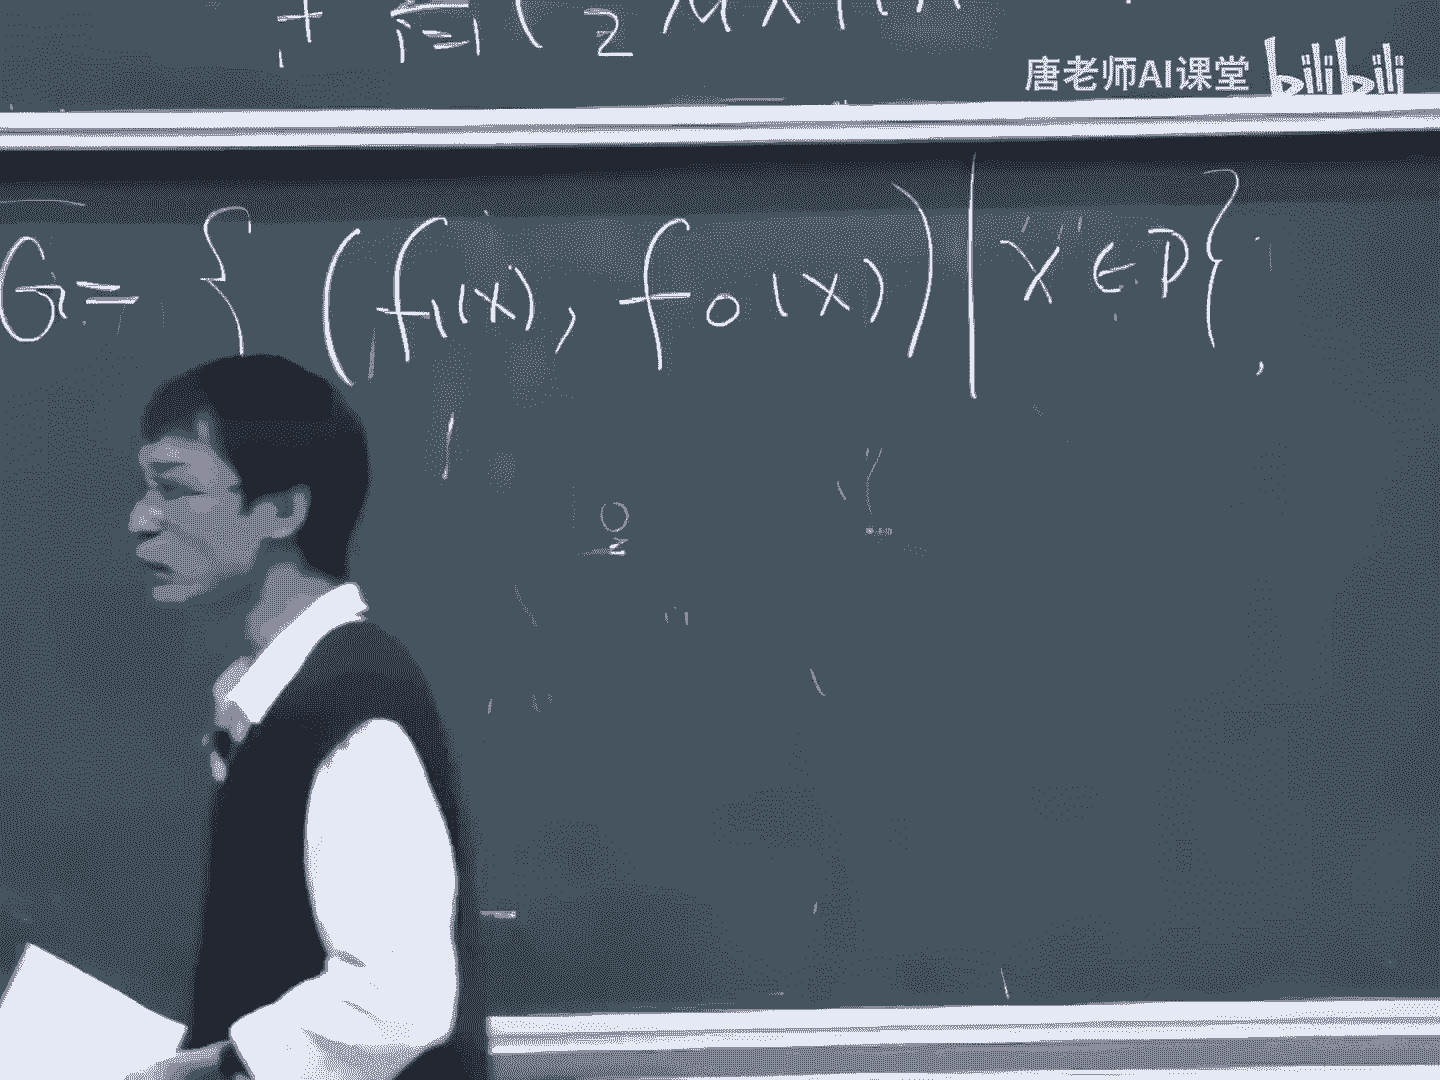 唐老师AI课堂 bilibili
G = { (f₁(x), f₀(x)) | x ∈ D },